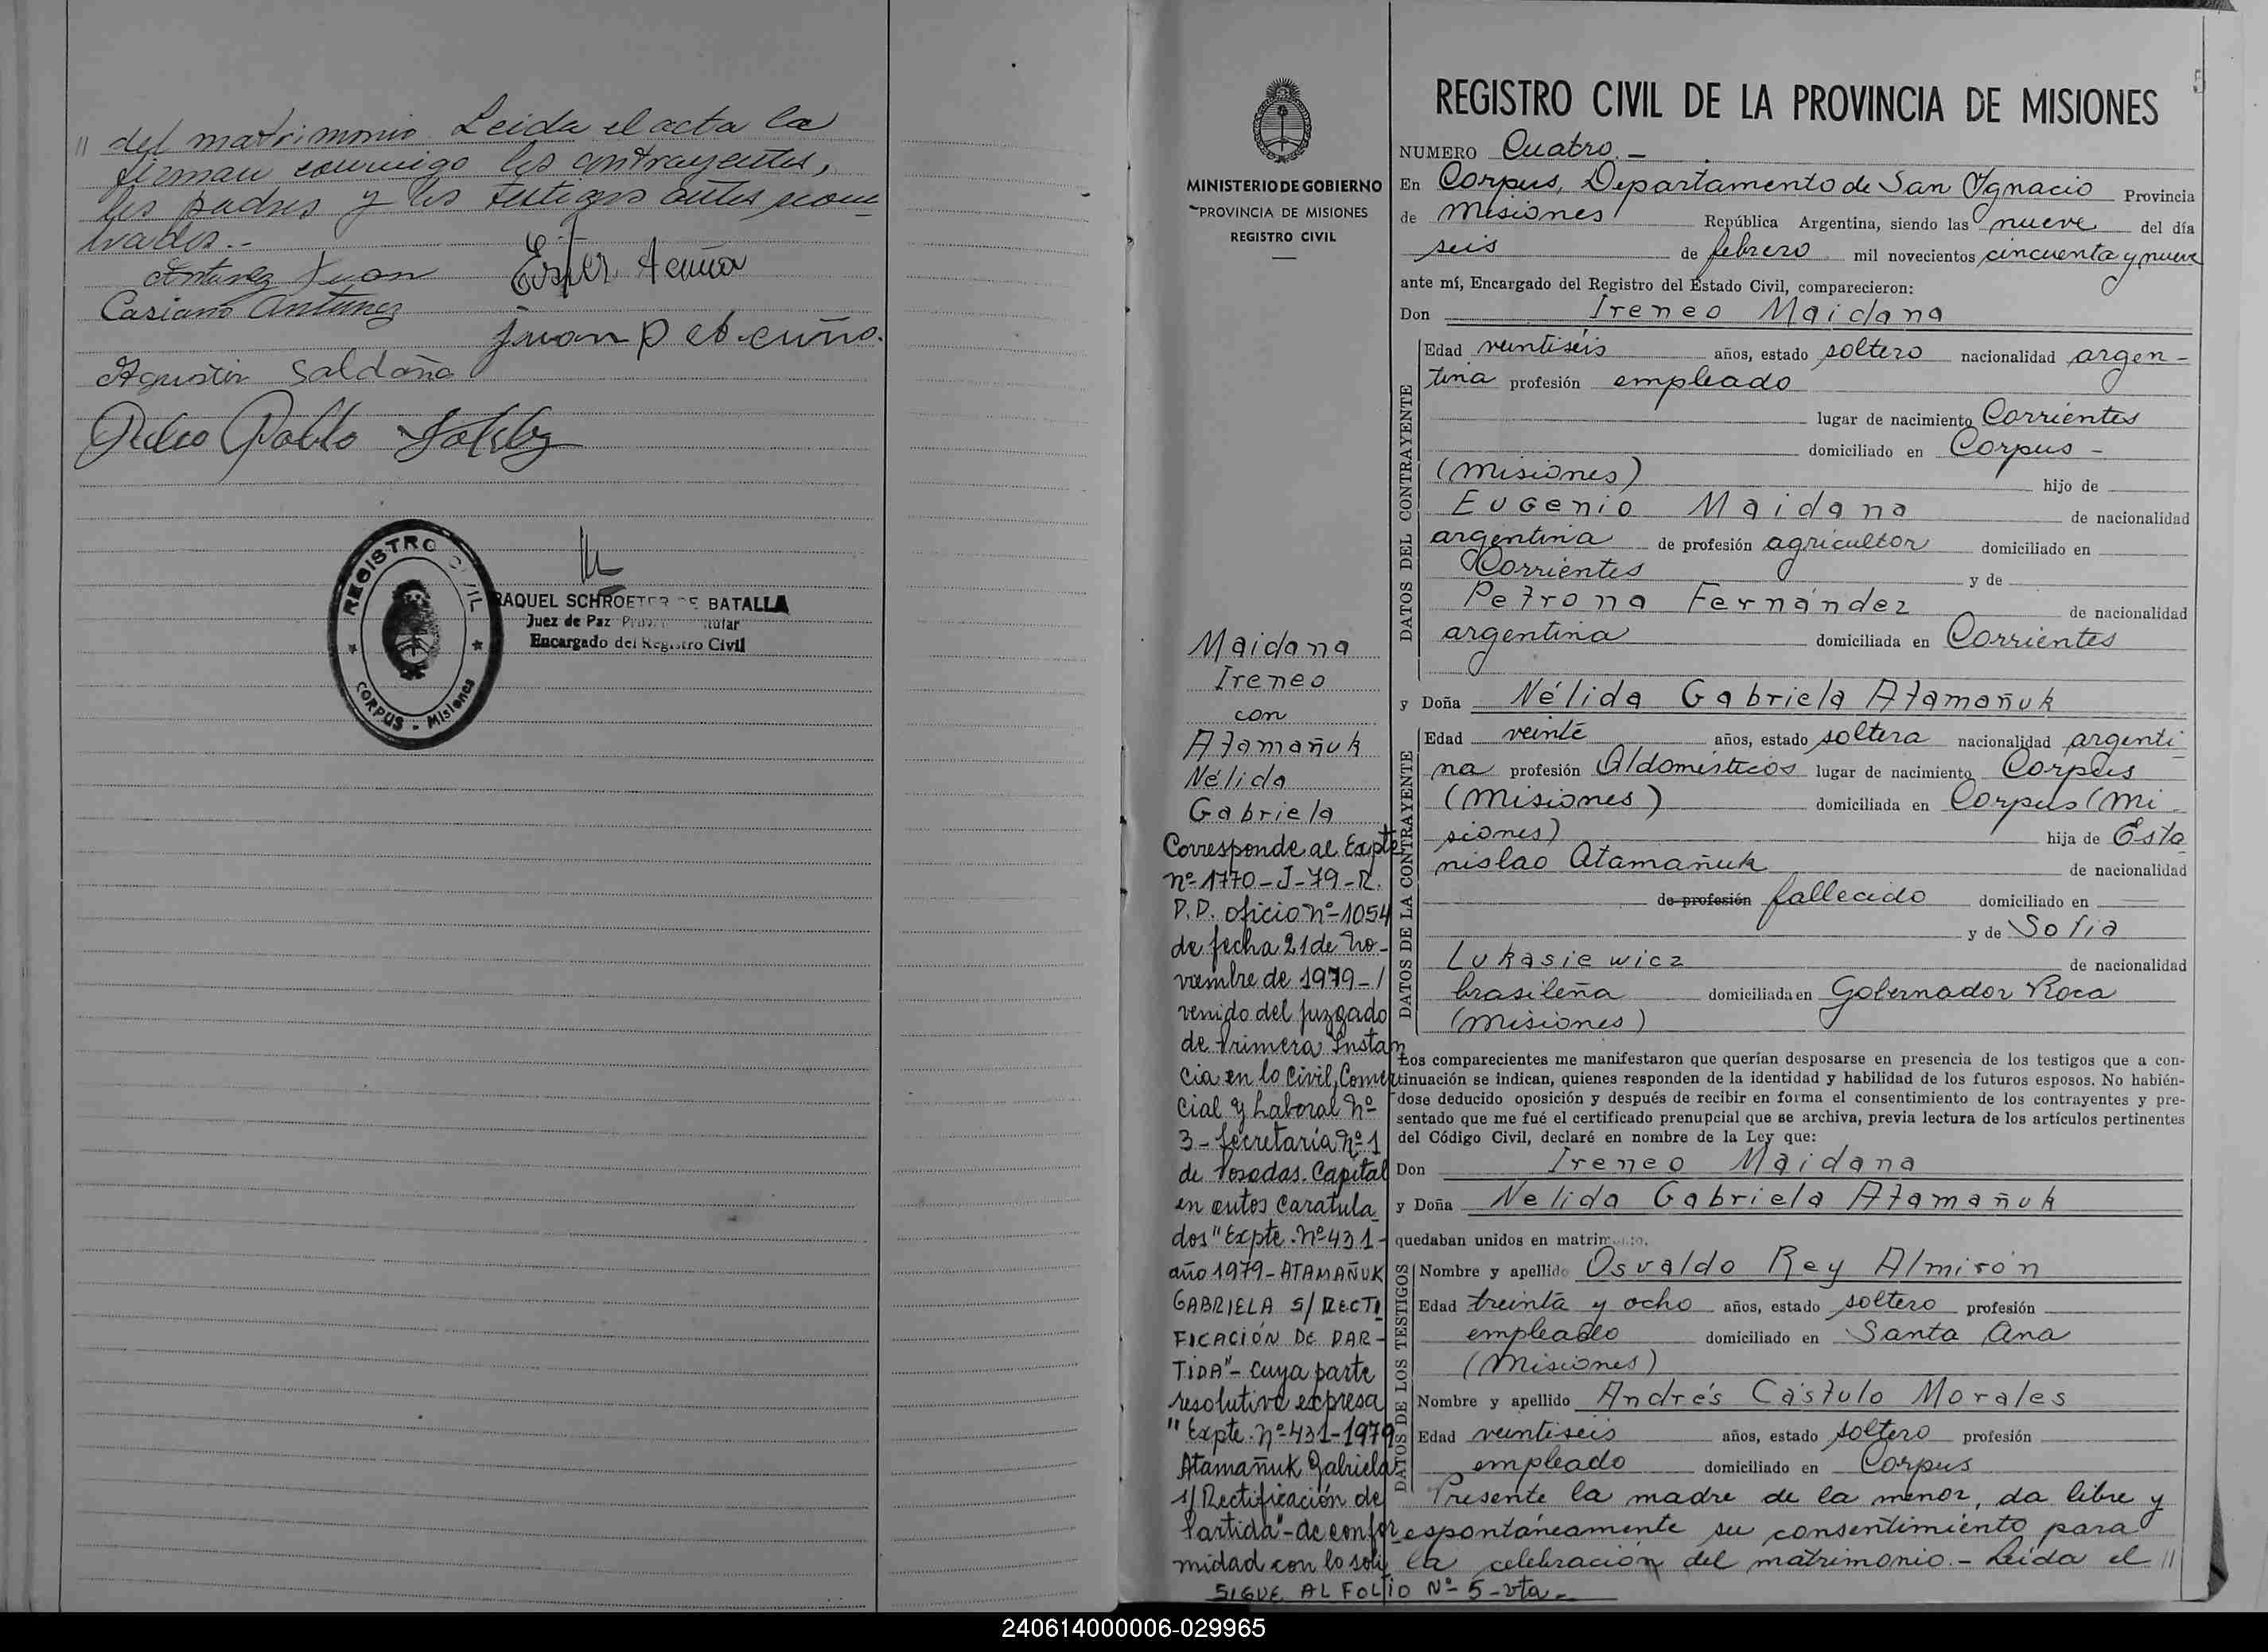 " del matrimonio. Leida el acta la
firman conmigo los contrayentes,
los padres y los testigos antes nom-
brados.-
Antunez Juan
Ester Acuña
Casiano Antunez
Juan D Acuña.
Agustin Saldaña
Pablo
REGISTRO CIVIL
CORPUS - Misiones
RAQUEL SCHROETER DE BATALLA
Juez de Paz
Encargado del Registro Civil
MINISTERIO DE GOBIERNO
PROVINCIA DE MISIONES
REGISTRO CIVIL
Maidana
Ireneo
con
Atamañuk
Nélida
Gabriela
Corresponde al Expte
nº 1770-J-79-R.
P.D. oficio nº 1054
de fecha 21 de No-
viembre de 1979-/
venido del juzgado
de Primera Instan
cia en lo Civil, Comer
cial y Laboral nº
3- Secretaría nº 1
de Posadas. Capital
en autos caratula
dos "Expte. Nº 431-
año 1979- ATAMAÑUK
GABRIELA S/ RECTI
FICACIÓN DE PAR-
TIDA"- cuya parte
resolutiva expresa
" Expte. nº 431-1979
Atamañuk Gabriela
s/ Rectificación de
Partida"- de confor
midad con lo soli
SIGUE AL FOLIO Nº 5-vta-
5
REGISTRO CIVIL DE LA PROVINCIA DE MISIONES
NUMERO Cuatro.-
En Corpus, Departamento de San Ignacio Provincia
de Misiones República Argentina, siendo las nueve del día
seis de febrero mil novecientos cincuenta y nueve
ante mí, Encargado del Registro del Estado Civil, comparecieron:
Don Ireneo Maidana
DATOS DEL CONTRAYENTE
Edad veintiséis años, estado soltero nacionalidad argen-
tina profesión empleado
lugar de nacimiento Corrientes
domiciliado en Corpus -
(Misiones) hijo de
Eugenio Maidana de nacionalidad
argentina de profesión agricultor domiciliado en
Corrientes y de
Petrona Fernández de nacionalidad
argentina domiciliada en Corrientes
y Doña Nélida Gabriela Atamañuk
DATOS DE LA CONTRAYENTE
Edad veinte años, estado soltera nacionalidad argenti
na profesión Q/domésticos lugar de nacimiento Corpus
(Misiones) domiciliada en Corpus (Mi
siones) hija de Esta
nislao Atamañuk de nacionalidad
de profesión fallecido domiciliado en
y de Sofia
Lukasiewicz de nacionalidad
brasileña domiciliada en Gobernador Roca
(Misiones)
Los comparecientes me manifestaron que querían desposarse en presencia de los testigos que a con-
tinuación se indican, quienes responden de la identidad y habilidad de los futuros esposos. No habién-
dose deducido oposición y después de recibir en forma el consentimiento de los contrayentes y pre-
sentado que me fué el certificado prenupcial que se archiva, previa lectura de los artículos pertinentes
del Código Civil, declaré en nombre de la Ley que:
Don Ireneo Maidana
y Doña Nelida Gabriela Atamañuk
quedaban unidos en matrimonio.
DATOS DE LOS TESTIGOS
Nombre y apellido Osvaldo Rey Almirón
Edad treinta y ocho años, estado soltero profesión
empleado domiciliado en Santa Ana
(Misiones)
Nombre y apellido Andrés Cástulo Morales
Edad veintiseis años, estado soltero profesión
empleado domiciliado en Corpus
Presente la madre de la menor, da libre y
espontáneamente su consentimiento para
la celebración del matrimonio.- Leida el //
240614000006-029965